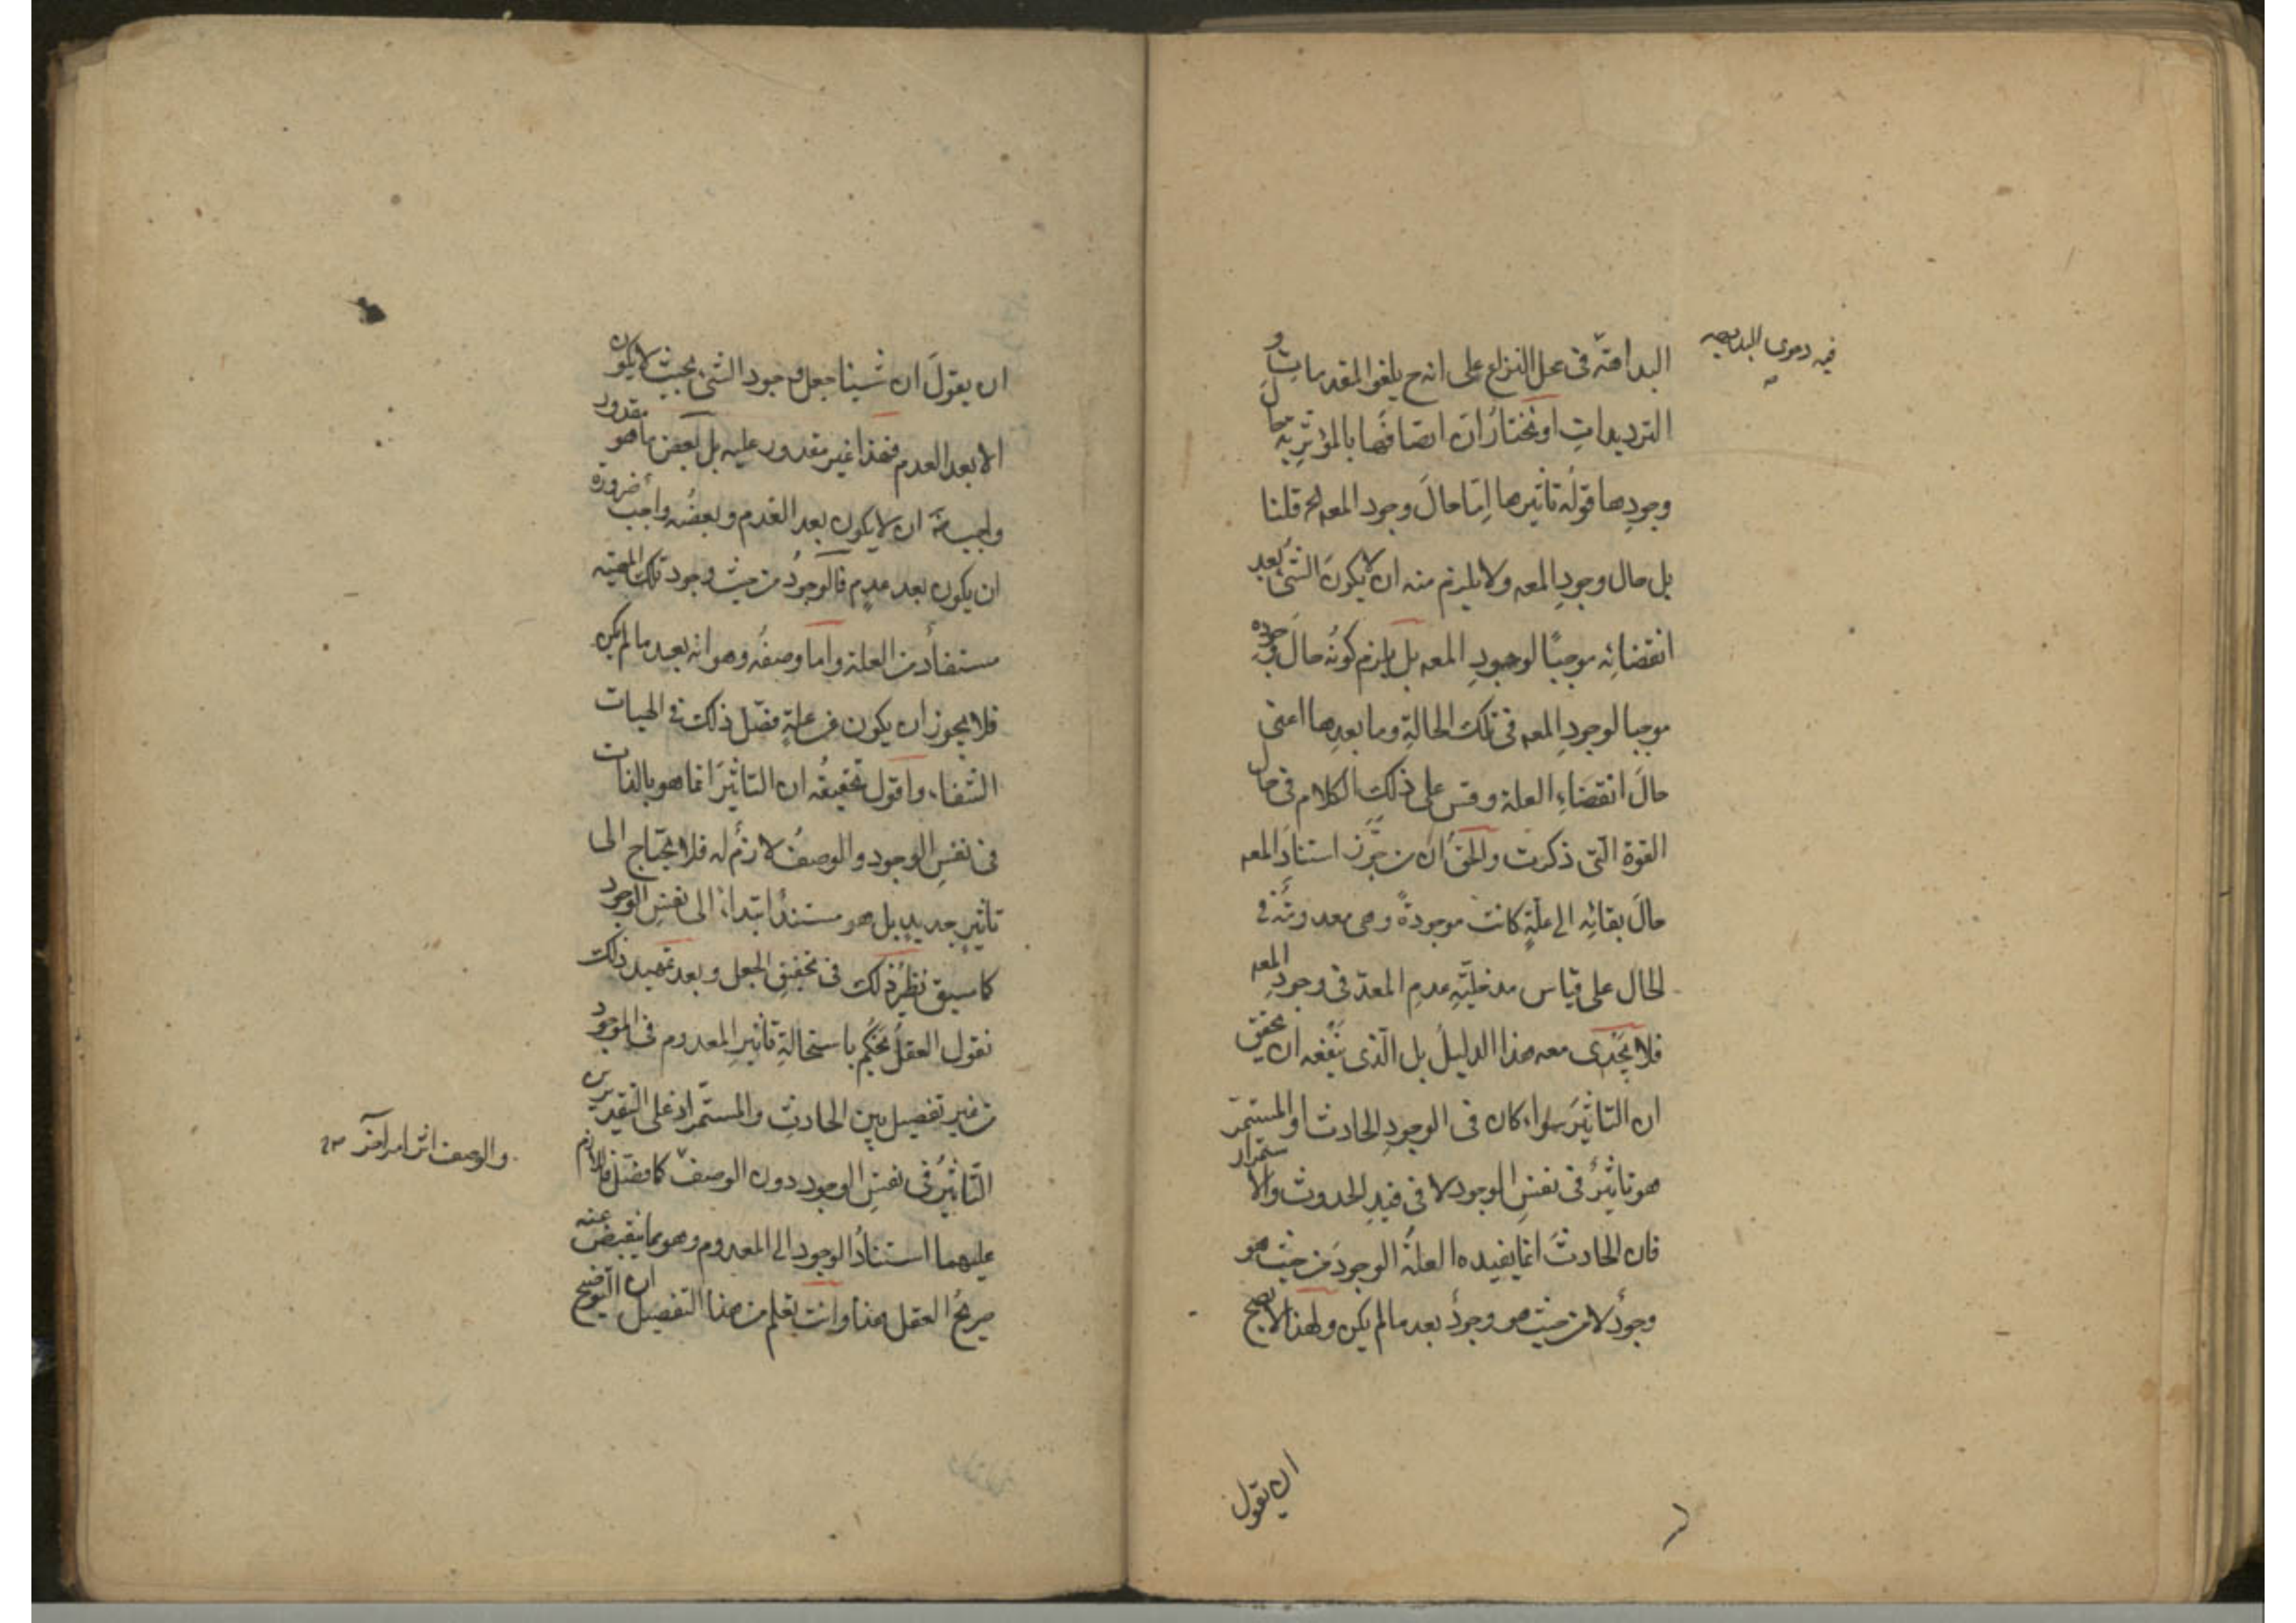 فيه دعوى البداهة
البداهة فى محل النزاع على انه ح يلغو المقدمات و
الترديدات او نختار ان اتصافها بالمؤثرية حال
وجودها قوله تاثيرها اما حال وجود المعه لخ قلنا
بل حال وجود المعه ولا يلزم منه ان لا يكون الشئ بعد
انقضائه موجبًا لوجود المعه بل يلزم كونه حال وجوده
موجبا لوجود المعه فى تلك الحالة وما بعدها اعنى
حال انقضاء العلة وقس على ذلك الكلام فى حال
القوة التى ذكرت والحق ان من جوّز استناد المعه
حال بقائه الى علة كانت موجودة وهى معدومة فى
الحال على قياس مدخلية عدم المعد فى وجود المعه
فلا يجدى معه هذا الدليل بل الذى ينفعه ان يحقق
ان التاثير سواء كان فى الوجود الحادث او المستمر
هو تاثير فى نفس الوجود لا فى قيد الحدوث والاستمرار
فان الحادث انما يفيده العلة الوجود من حيث هو
وجود لا من حيث هو وجود بعد ما لم يكن ولهذا لا يصح
ان يقول
ان يقول ان شيئا جعل وجود الشئ بحيث لا يكون
الا بعد العدم فهذا غير مقدور عليه بل بعض ما هو مقدور
واجب ضرورة ان لا يكون بعد العدم وبعضه واجب
ان يكون بعد عدم فالوجود من حيث وجود تلك المهية
مستفاد من العلة واما وصفه وهو انه بعد ما لم يكن
فلا يجوز ان يكون عن علة فصّل ذلك فى الهيات
الشفاء واقول تحقيقه ان التاثير انما هو بالذات
فى نفس الوجود والوصف لازم له فلا يحتاج الى
تاثير جديد بل هو مستند ابتداء الى نفس الوجود
كما سبق نظير ذلك فى تحقيق الجعل وبعد تمهيد ذلك
نقول العقل يحكم باستحالة تاثير المعدوم فى الموجود
من غير تفصيل بين الحادث والمستمر اذ على التقديرين
التاثير فى نفس الوجود دون الوصف كما فصّل فاللازم
والوصف اثر امر آخر
عليهما استناد الوجود الى المعدوم وهو مما ينقبض عنه
صريح العقل هذا وانت تعلم من هذا التفصيل ان التوضيح